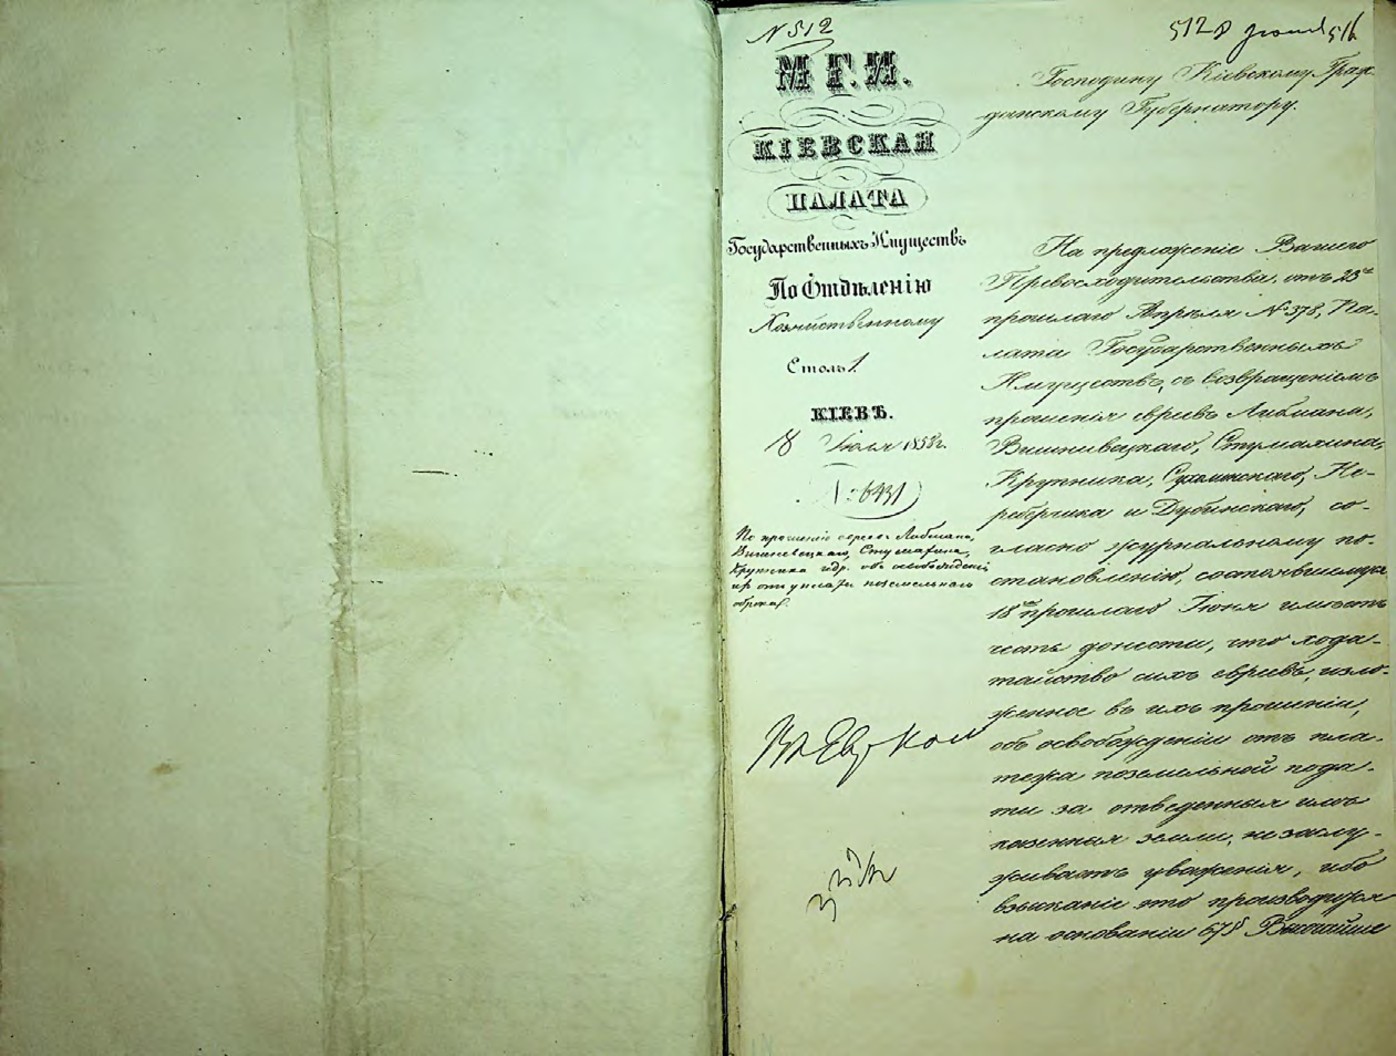 N 512
М. Г. И.
КІЕВСКАЯ
ПАЛАТА
Государственныхъ Имуществъ
По Отдѣленію
Хозяйственному
Столъ 1.
КІЕВЪ.
8 Іюля 1858 г.
№ 6431
По прошенію евреевъ Либмана,
Вишневецкаго, Стумахина,
Крупника и др. объ освобожденіи
ихъ отъ уплаты поземельнаго
оброка.
512
Господину Кіевскому Граж-
данскому Губернатору.
На предложеніе Вашего
Превосходительства, отъ 23го
прошлаго Апрѣля № 378, Па-
лата Государственныхъ
Имуществъ, съ возвращеніемъ
прошенія евреевъ Либмана,
Вишнивацкаго, Стумахина,
Крупника, Сухолинскаго, Ке-
ребчика и Дубинскаго, со-
гласно журнальному по-
становленію, состоявшемуся
18го прошлаго Іюня имѣетъ
честь донести, что хода-
тайство сихъ евреевъ, изло-
женное въ ихъ прошеніи,
объ освобожденіи отъ пла-
тежа поземельной пода-
ти за отведенныя имъ
казенныя земли, незаслу-
живаетъ уваженія, ибо
взысканіе это производится
на основаніи 678 Высочайше